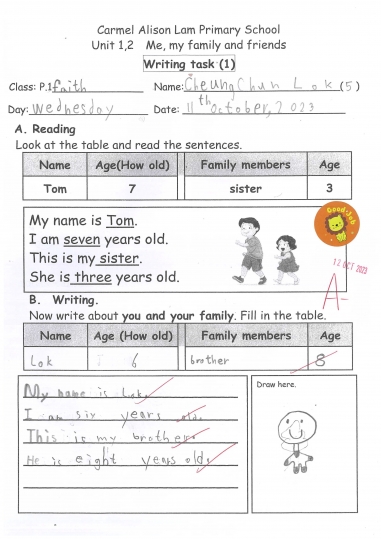 Carmel Alison Lam Primary School
Unit 1,2 Me, my family and friends
Writing task (1)
Class: P.1 faith Name: Cheung Chun Lok (5)
Day: Wednesday Date: 11th October, 2023
A. Reading
Look at the table and read the sentences.
Name Age(How old) Family members Age
Tom 7 sister 3
My name is Tom.
I am seven years old.
This is my sister.
She is three years old.
Good Job
12 OCT 2023
A-
B. Writing.
Now write about you and your family. Fill in the table.
Name Age (How old) Family members Age
Lok 6 brother 8
My name is Lok.
I am six years old.
This is my brother.
He is eight years old.
Draw here.